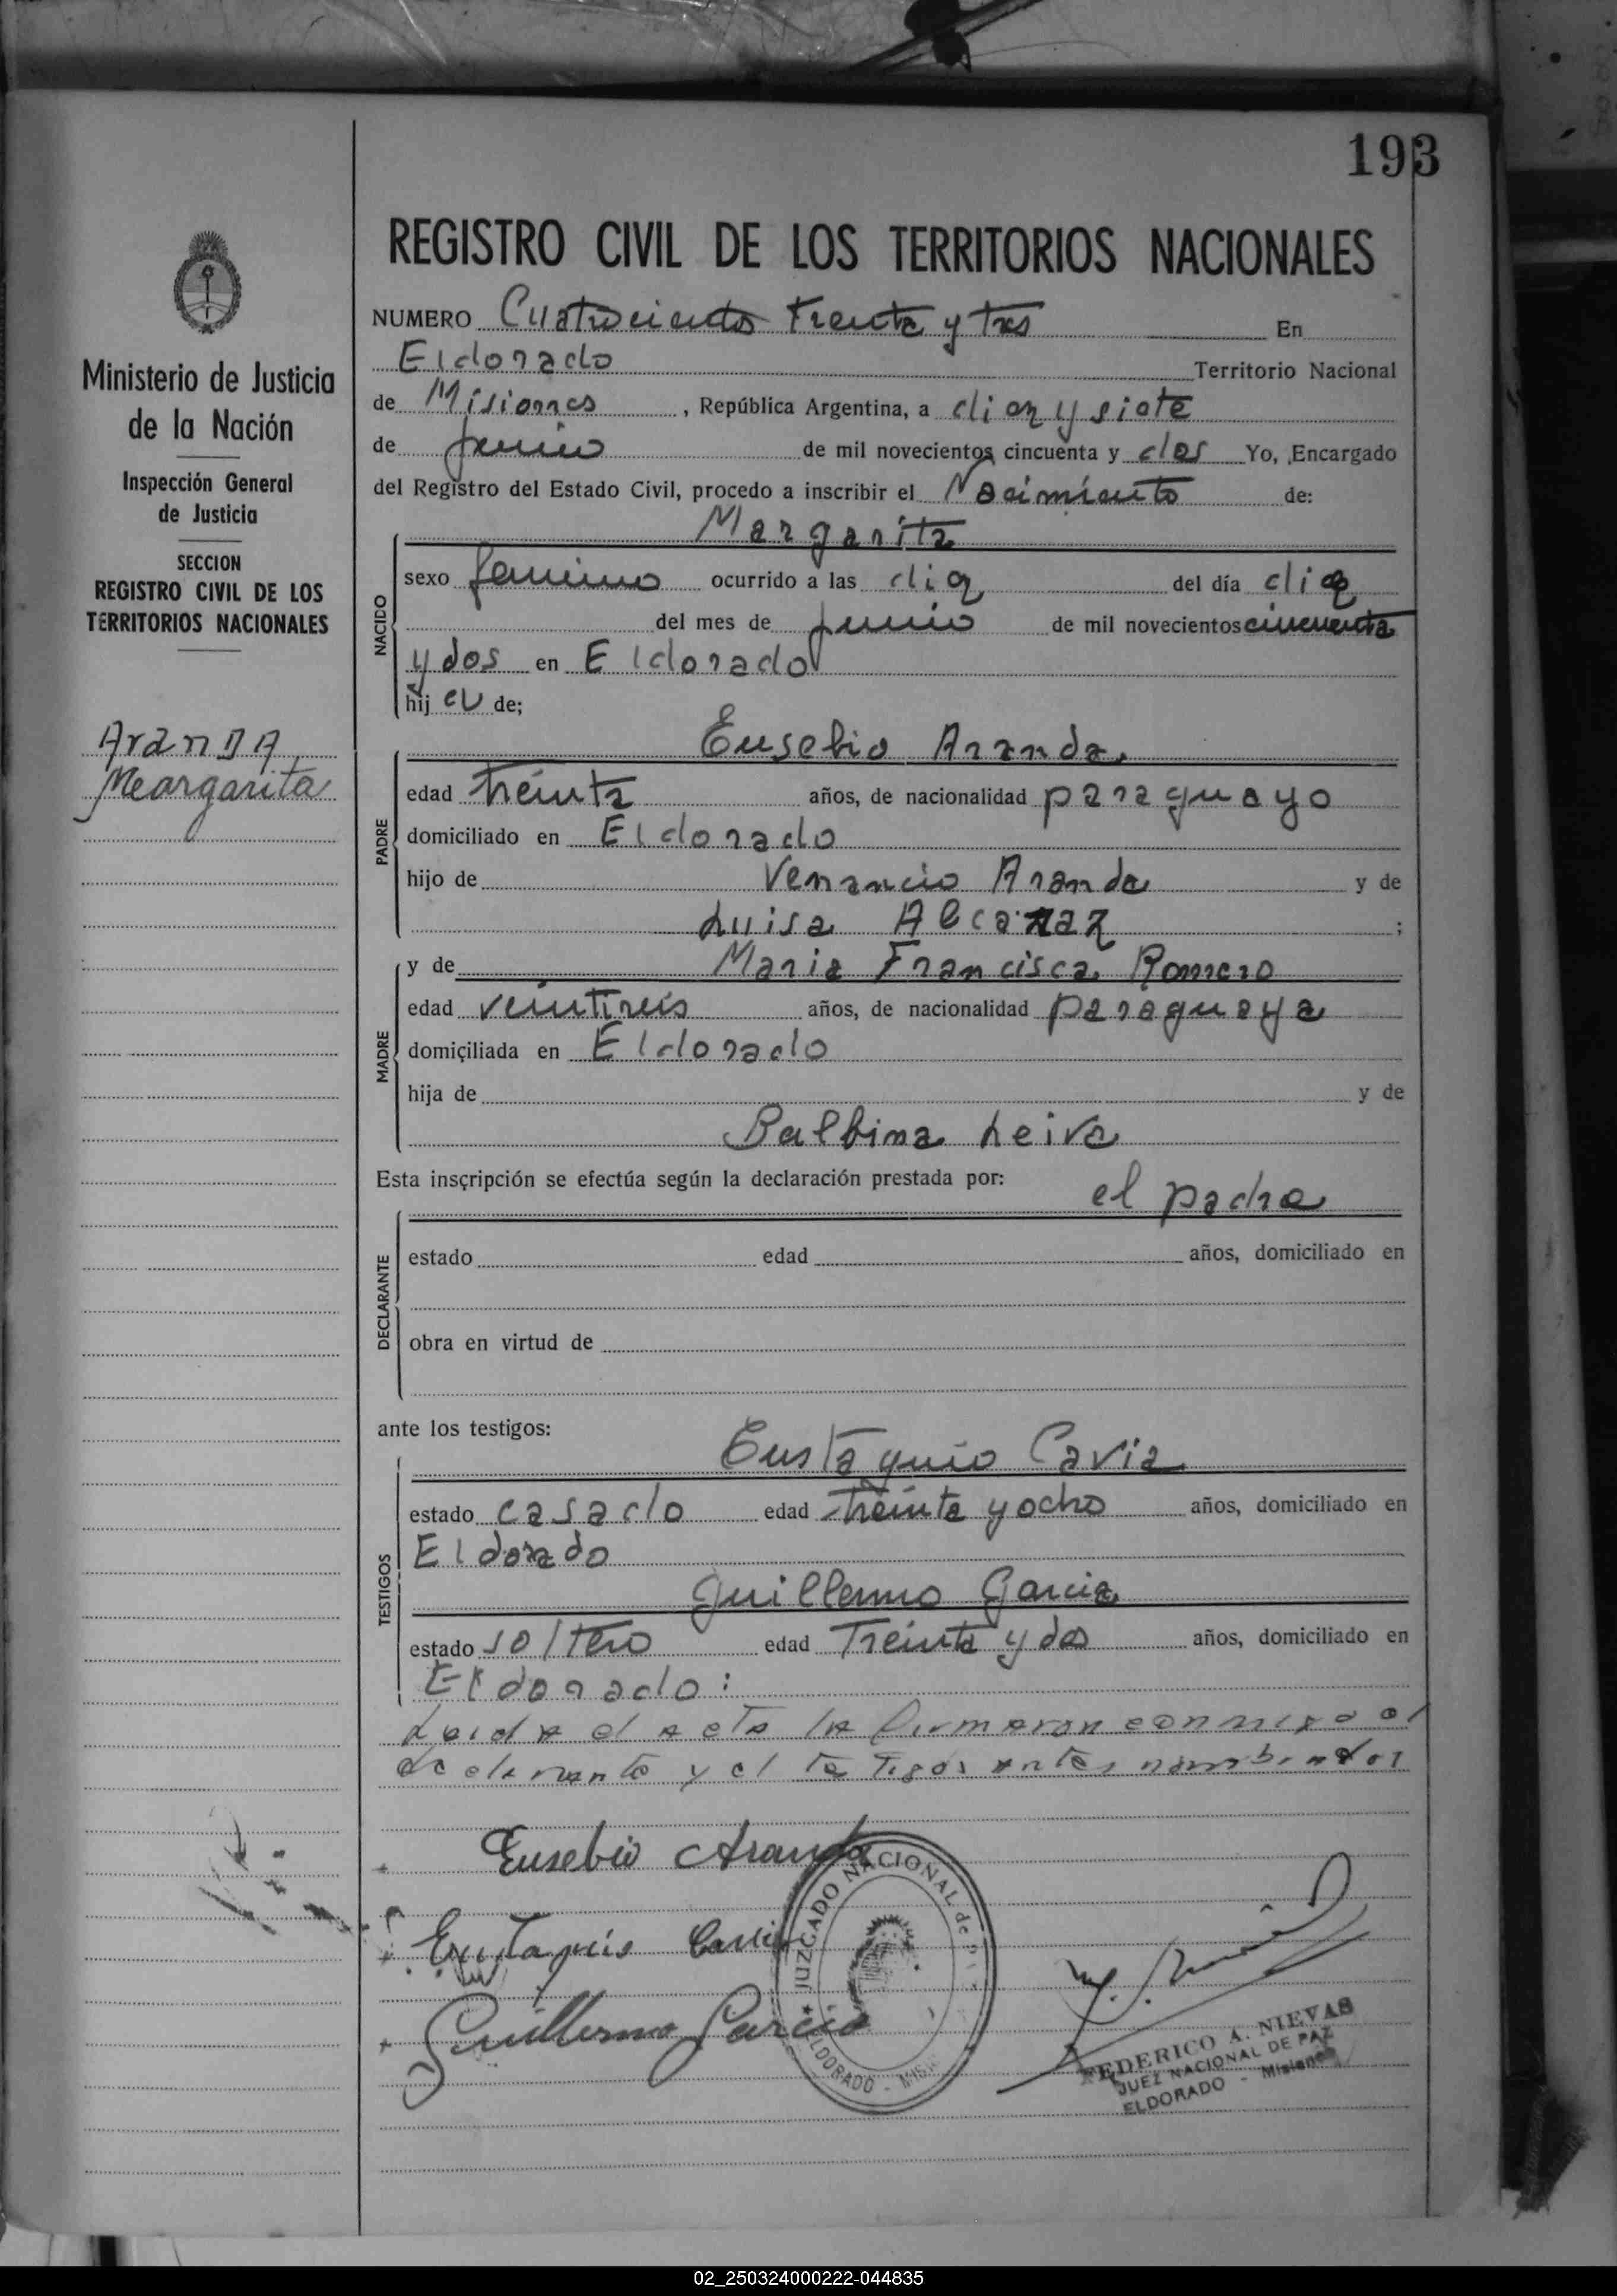 193
REGISTRO CIVIL DE LOS TERRITORIOS NACIONALES
NUMERO Cuatrocientos Treinta y tres En
Eldorado Territorio Nacional
de Misiones, República Argentina, a diez y siete
de junio de mil novecientos cincuenta y dos Yo, Encargado
del Registro del Estado Civil, procedo a inscribir el Nacimiento de:
Margarita
NACIDO
sexo femenino ocurrido a las diez del día diez
del mes de junio de mil novecientos cincuenta
y dos en Eldorado
hija de;
PADRE
Eusebio Aranda
edad treinta años, de nacionalidad paraguayo
domiciliado en Eldorado
hijo de Venancio Aranda y de
Luisa Alcaraz;
MADRE
y de Maria Francisca Romero
edad veintiseis años, de nacionalidad paraguaya
domiciliada en Eldorado
hija de y de
Balbina Leiva
Esta inscripción se efectúa según la declaración prestada por:
el padre
DECLARANTE
estado edad años, domiciliado en
obra en virtud de
ante los testigos:
TESTIGOS
Eustaquio Cavia
estado casado edad treinta y ocho años, domiciliado en
Eldorado
Guillermo Garcia
estado soltero edad Treinta y dos años, domiciliado en
Eldorado:
Leida el acta la firmaron conmigo el
declarante y el testigos antes nombrados
Eusebio Aranda
Eustaquio Cavia
Guillermo Garcia
JUZGADO NACIONAL de
ELDORADO - MIS
FEDERICO A. NIEVAS
JUEZ NACIONAL DE PAZ
ELDORADO - Misiones
Ministerio de Justicia
de la Nación
Inspección General
de Justicia
SECCION
REGISTRO CIVIL DE LOS
TERRITORIOS NACIONALES
ArandA
Margarita
02_250324000222-044835